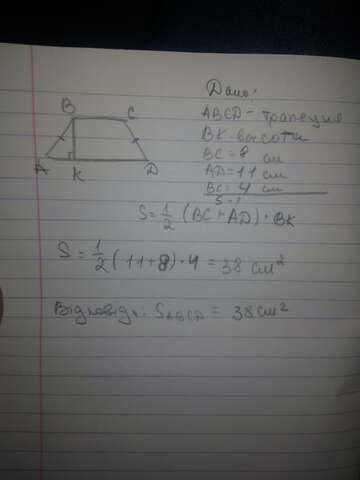 Дано:
ABCD - трапеция
BK - высоты
BC = 8 см
AD = 11 см
BC = 4 см
S - ?
B C
A K D
S = 1/2 (BC + AD) · BK
S = 1/2 (11 + 8) · 4 = 38 см²
Відповідь: S ABCD = 38 см²